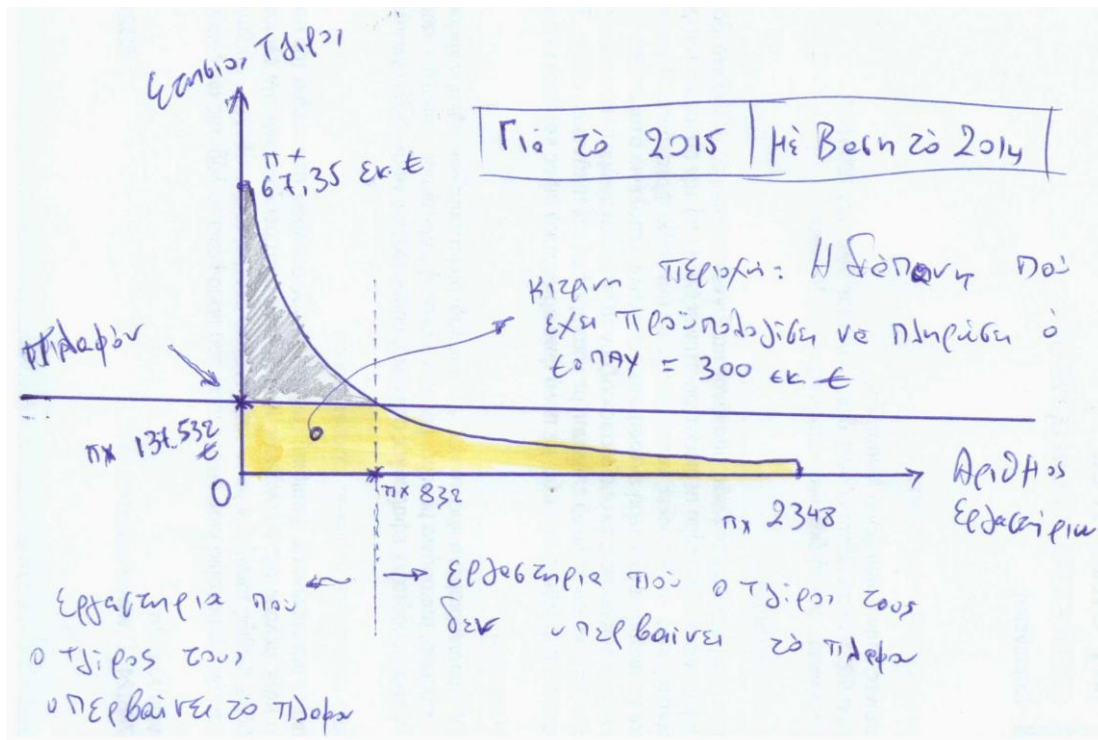 Ετησιος Τζιρος
πχ
67,35 εκ. €
Για το 2015 | Με Βαση το 2014
Κιτρινη περιοχη: Η δαπανη που
εχει προϋπολογισει να πληρωσει ο
εοπαυ = 300 εκ €
Πλαφον
πχ 137.532
€
0
πχ 832
πχ 2348
Αριθμος
εργαστηριων
εργαστηρια που
ο τζιρος τους
υπερβαινει το πλαφον
εργαστηρια που ο τζιρος τους
δεν υπερβαινει το πλαφον